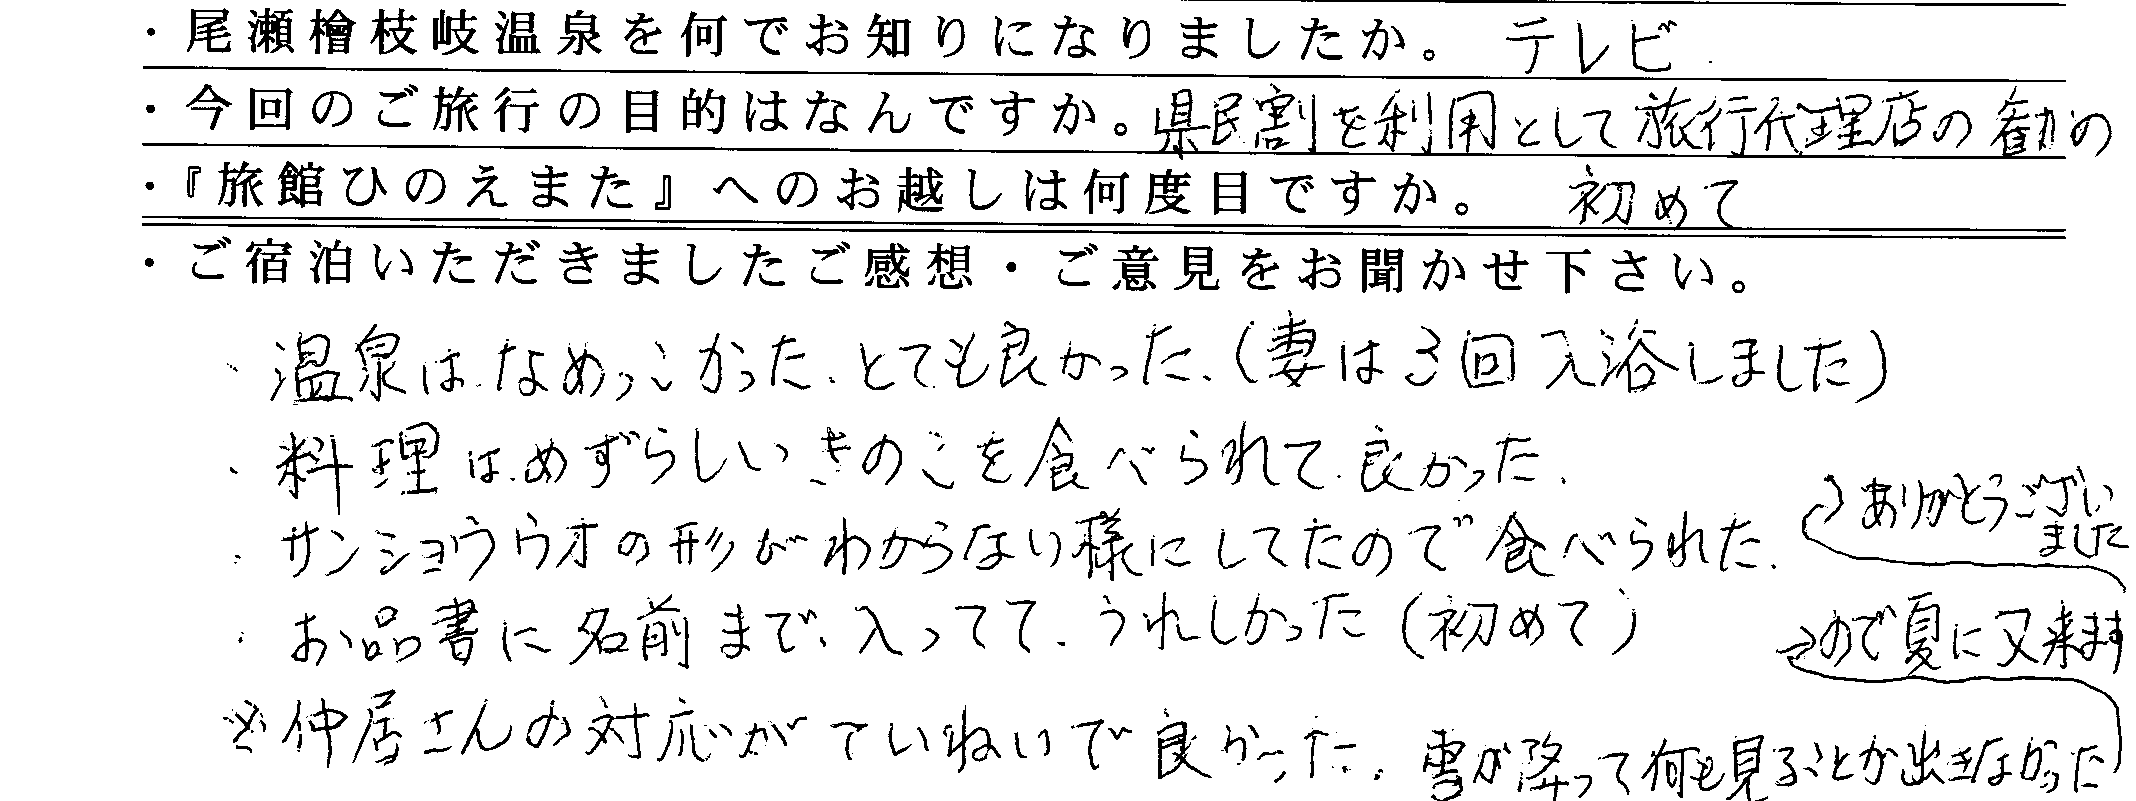 ・尾瀬檜枝岐温泉を何でお知りになりましたか。 テレビ
・今回のご旅行の目的はなんですか。県民割を利用として旅行代理店の勧めの
・『旅館ひのえまた』へのお越しは何度目ですか。 初めて
・ご宿泊いただきましたご感想・ご意見をお聞かせ下さい。
・温泉は、なめっこかった、とても良かった、(妻は3回入浴しました)
・料理は、めずらしいきのこを食べられて、良かった、
・サンショウウオの形がわからない様にしてたので食べられた、
・お品書に名前まで、入ってて、うれしかった(初めて)
※仲居さんの対応がていねいで良かった、雪が降って何も見ることが出きなかった
ので夏に又来ます
ありがとうござい
ました